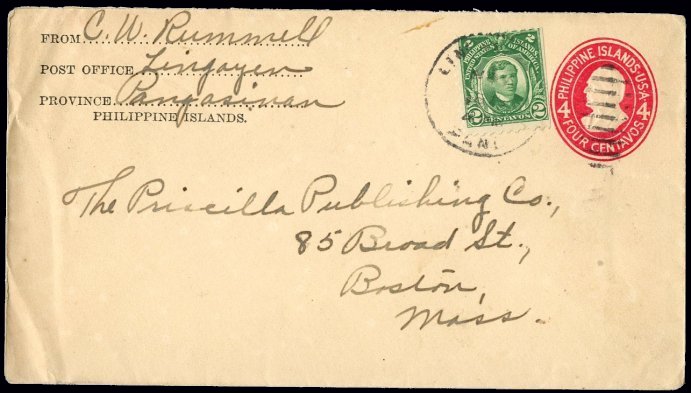 FROM C. W. Rummell
POST OFFICE Lingayen
PROVINCE Pangasinan
PHILIPPINE ISLANDS.
2 2
PHILIPPINE ISLANDS
UNITED STATES OF AMERICA
2 CENTAVOS 2
PHILIPPINE ISLANDS·U.S.A.
4 4
FOUR CENTAVOS
The Priscilla Publishing Co.,
85 Broad St.,
Boston,
Mass.